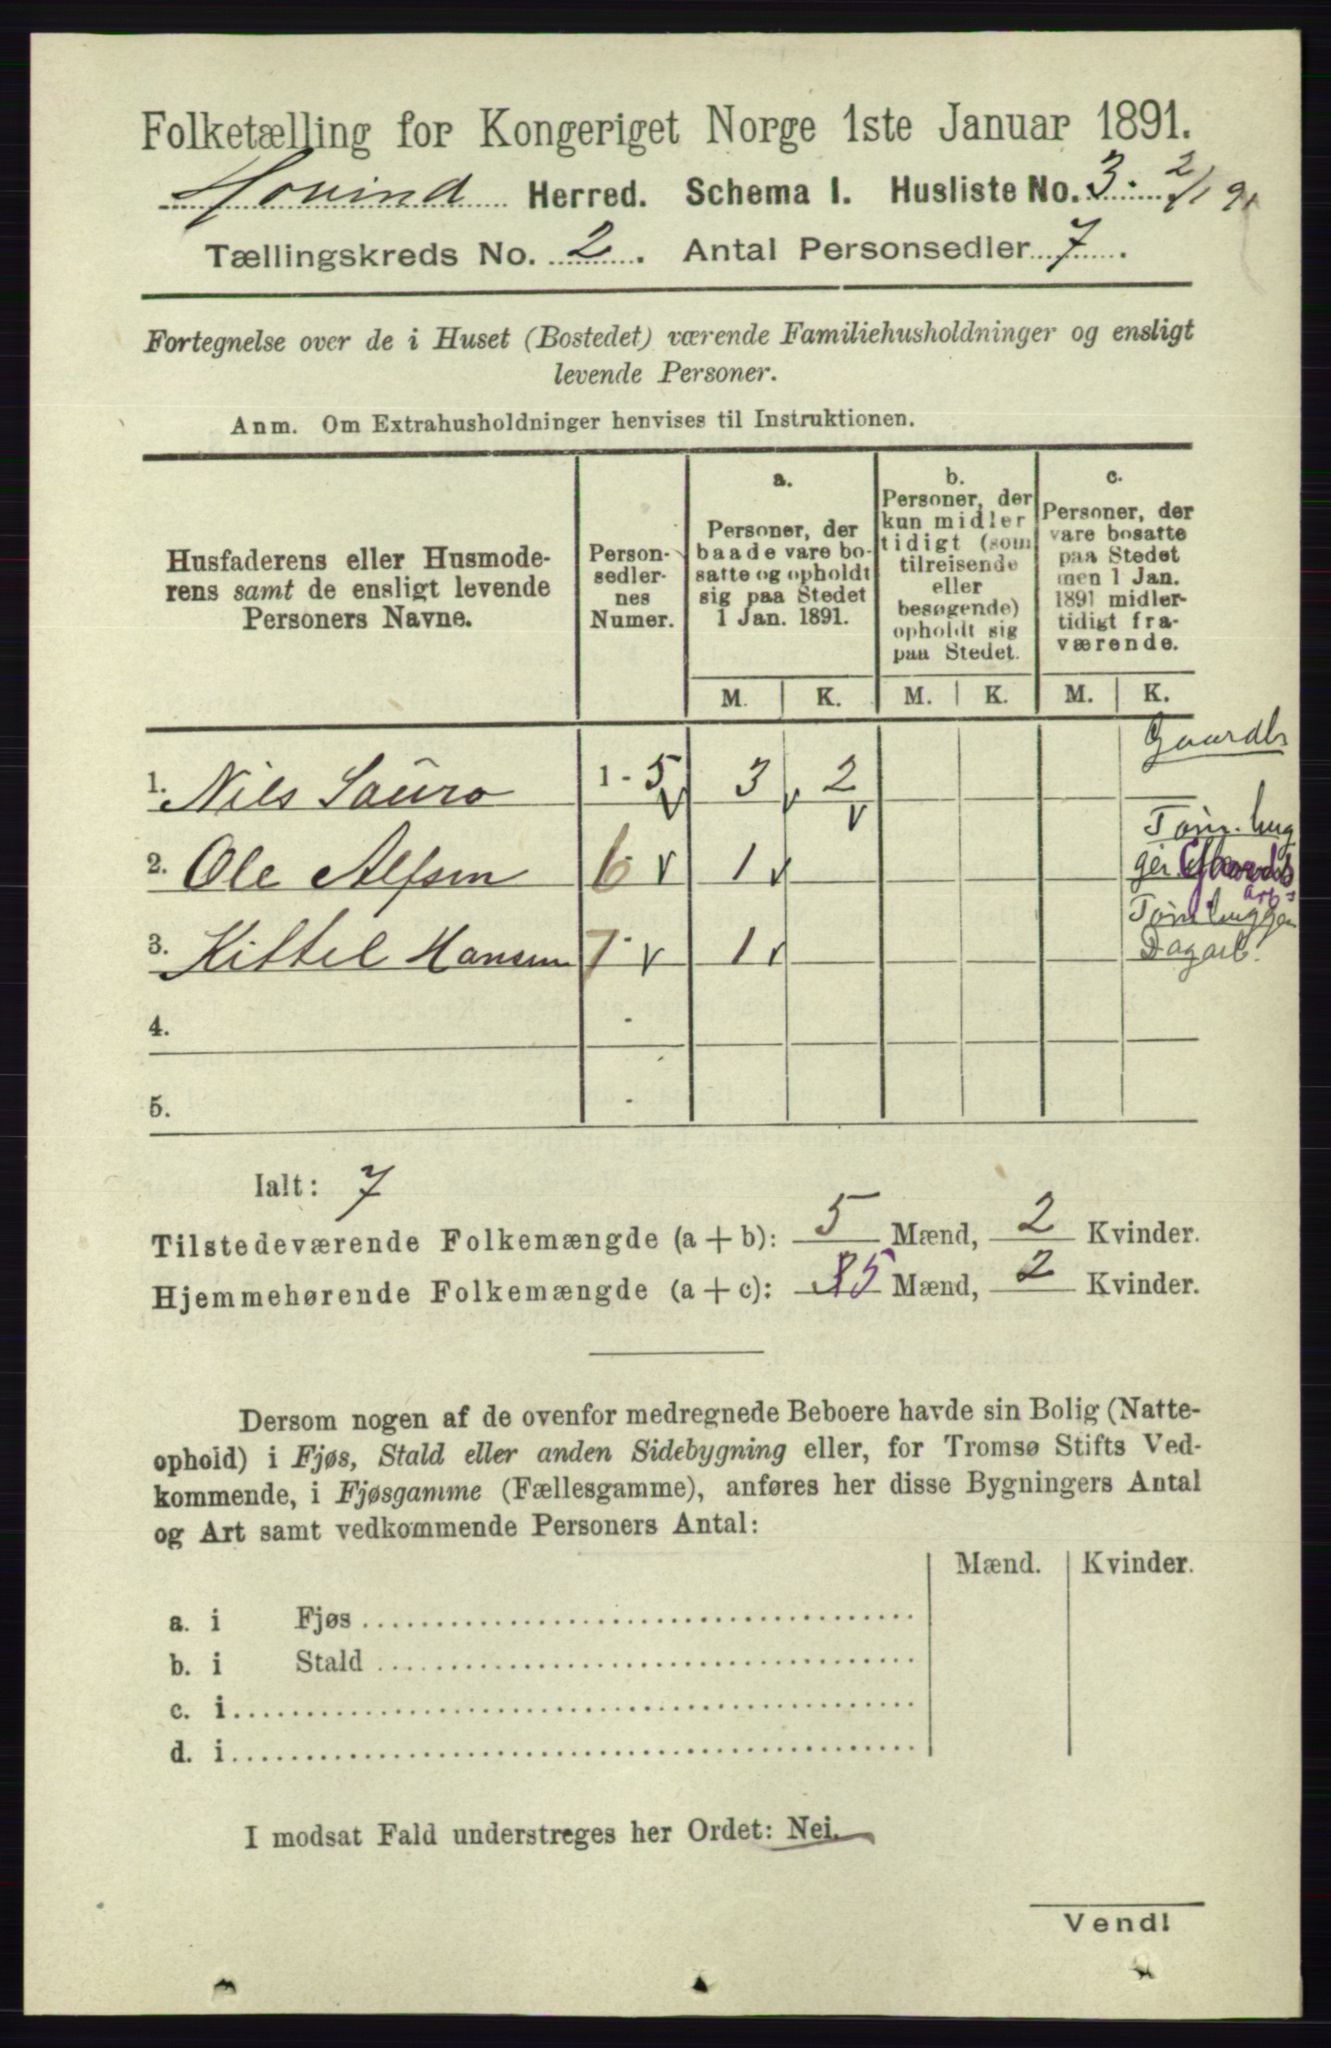 Folketælling for Kongeriget Norge 1ste Januar 1891.
Hovind Herred. Schema I. Husliste No. 3. 2/1 91
Tællingskreds No. 2. Antal Personsedler 7.
Fortegnelse over de i Huset (Bostedet) værende Familiehusholdninger og ensligt
levende Personer.
Anm. Om Extrahusholdninger henvises til Instruktionen.
Husfaderens eller Husmode-
rens samt de ensligt levende
Personers Navne.
Person-
sedler-
nes
Numer.
a.
Personer, der
baade vare bo-
satte og opholdt
sig paa Stedet
1 Jan. 1891.
b.
Personer, der
kun midler
tidigt (som
tilreisende
eller
besøgende)
opholdt sig
paa Stedet.
c.
Personer, der
vare bosatte
paa Stedet
men 1 Jan.
1891 midler-
tidigt fra-
værende.
M. K. M. K. M. K.
Gaardbr
1. Nils Sauro 1 - 5 3 2
Tøm.hug
2. Ole Alfsen 6 1 ger
Tømhugger
3. Kittel Hansen 7 1 Dagarb.
4.
5.
Ialt: 7
Tilstedeværende Folkemængde (a + b): 5 Mænd, 2 Kvinder.
Hjemmehørende Folkemængde (a + c): 5 Mænd, 2 Kvinder.
Dersom nogen af de ovenfor medregnede Beboere havde sin Bolig (Natte-
ophold) i Fjøs, Stald eller anden Sidebygning eller, for Tromsø Stifts Ved-
kommende, i Fjøsgamme (Fællesgamme), anføres her disse Bygningers Antal
og Art samt vedkommende Personers Antal:
Mænd. Kvinder.
a. i Fjøs
b. i Stald
c. i
d. i
I modsat Fald understreges her Ordet: Nei.
Vend!